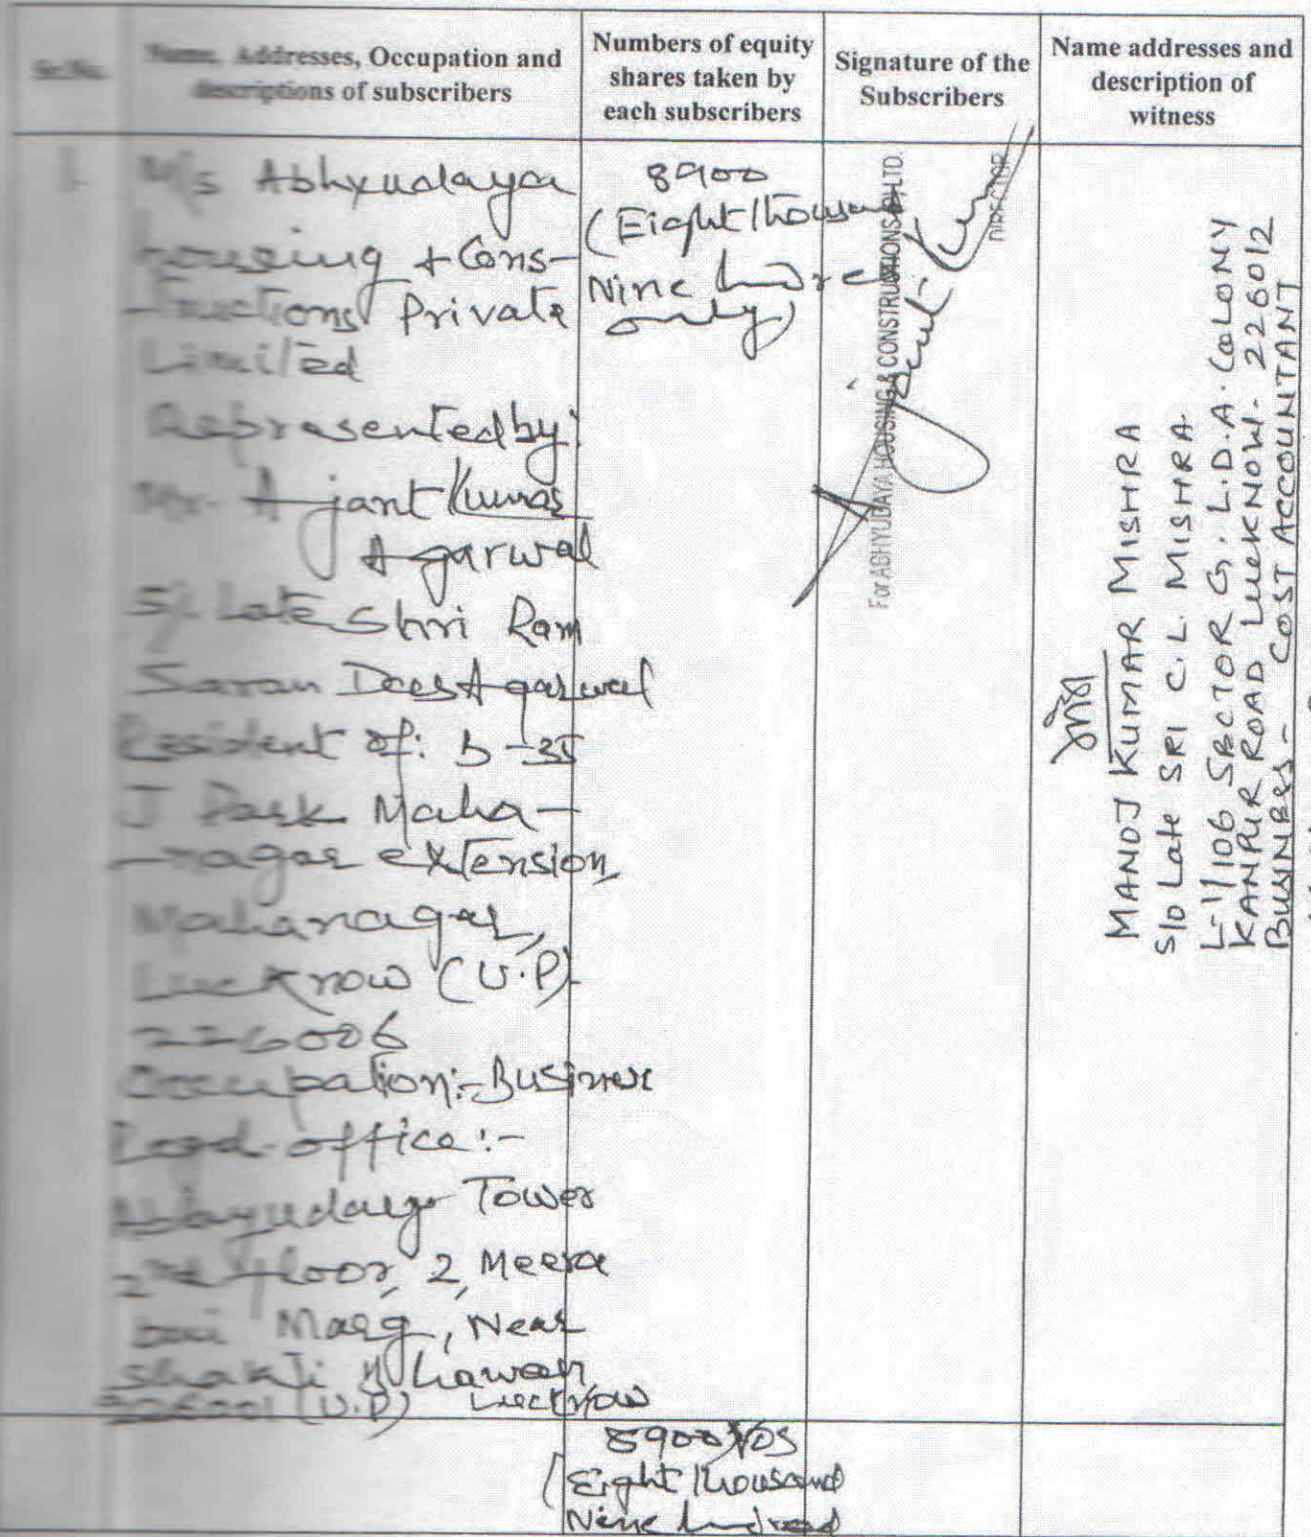 Sr.No.
Name, Addresses, Occupation and
descriptions of subscribers
Numbers of equity
shares taken by
each subscribers
Signature of the
Subscribers
Name addresses and
description of
witness
1
M/s Abhyudaya
housing + Cons-
-tructions Private
Limited
Represented by:
Mr. Ajant Kumar
Agarwal
S/o Late Shri Ram
Saran Das Agarwal
Resident of: B-35
J Park Maha-
-nagar extension,
Mahanagar,
Lucknow (U.P)
226006
Occupation:- Business
Regd. office:-
Abhyudaya Tower
2nd floor, 2, Meera
bai Marg, Near
Shakti Bhawan
226001 (U.P) Lucknow
8900
(Eight thousand
Nine hundred
only)
For ABHYUDAYA HOUSING & CONSTRUCTIONS (P) LTD.
Ajant Kumar
DIRECTOR
MANOJ KUMAR MISHRA
S/o Late SRI C. L. MISHRA.
L-1/106 SECTOR G. L.D.A. COLONY
KANPUR ROAD LUCKNOW. 226012
BUSINESS - COST ACCOUNTANT
8900 NOS
(Eight thousand
Nine hundred